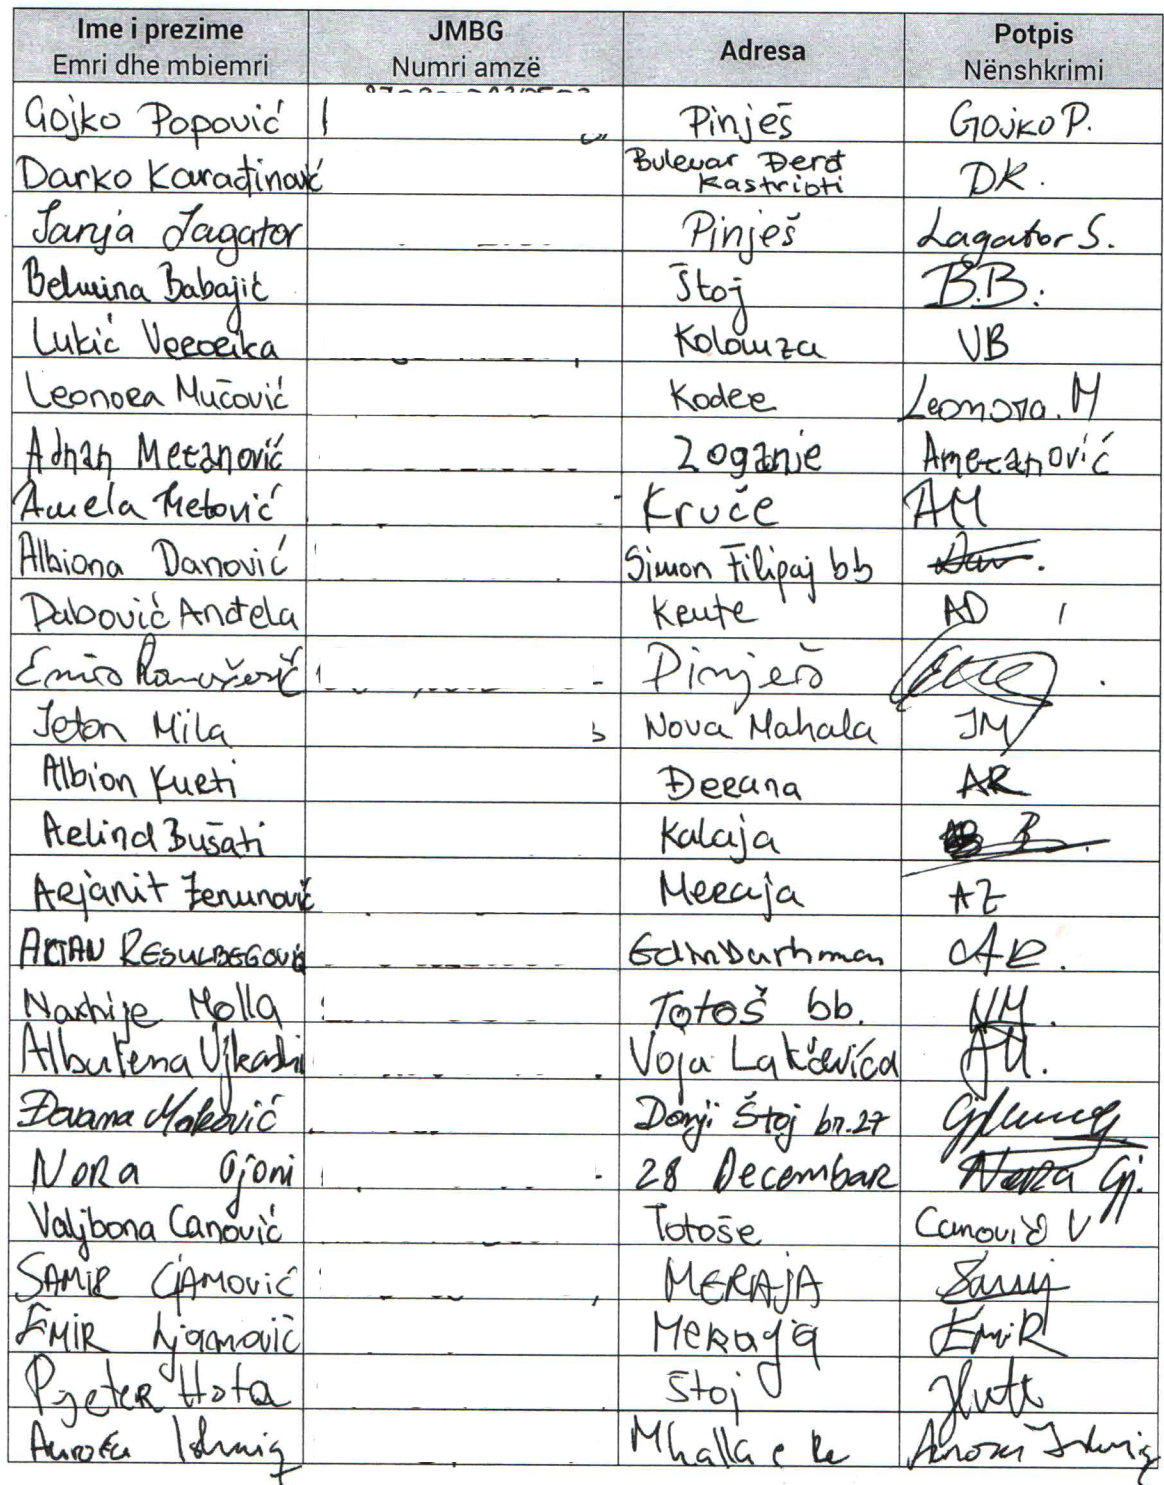 Ime i prezime JMBG Adresa Potpis
Emri dhe mbiemri Numri amzë Nënshkrimi
Gojko Popović Pinješ Gojko P.
Darko Karađinović Bulevar Đerđ Kastrioti DK.
Sanja Lagator Pinješ Lagator S.
Belmina Babajić Štoj B.B.
Lukić Veronika Kolomza VB
Leonora Mučović Kodre Leonora. M
Adnan Metanović Zoganje Ametanović
Amela Metović Kruče AM
Albiona Danović Simon Filipaj bb
Dabović Anđela Krute AD
Pinješ
Jeton Mila Nova Mahala JM
Albion Kurti Đerana AR
Arlind Bušati Kalaja B
Arjanit Zenunović Meraja AZ
RESULBEGOVIĆ AR.
Naxhije Molla Totoš bb. NM.
Albulena Voja Lakčevića AU.
Đurana Donji Štoj br.27
Nora Gjoni 28 Decembar Nora Gj.
Valjbona Canović Totoše Canović V
SAMIR GJAMOVIĆ MERAJA Samij
EMIR Gjamović Meraja EmiR
Pjeter Hota Štoj
Mhalla e